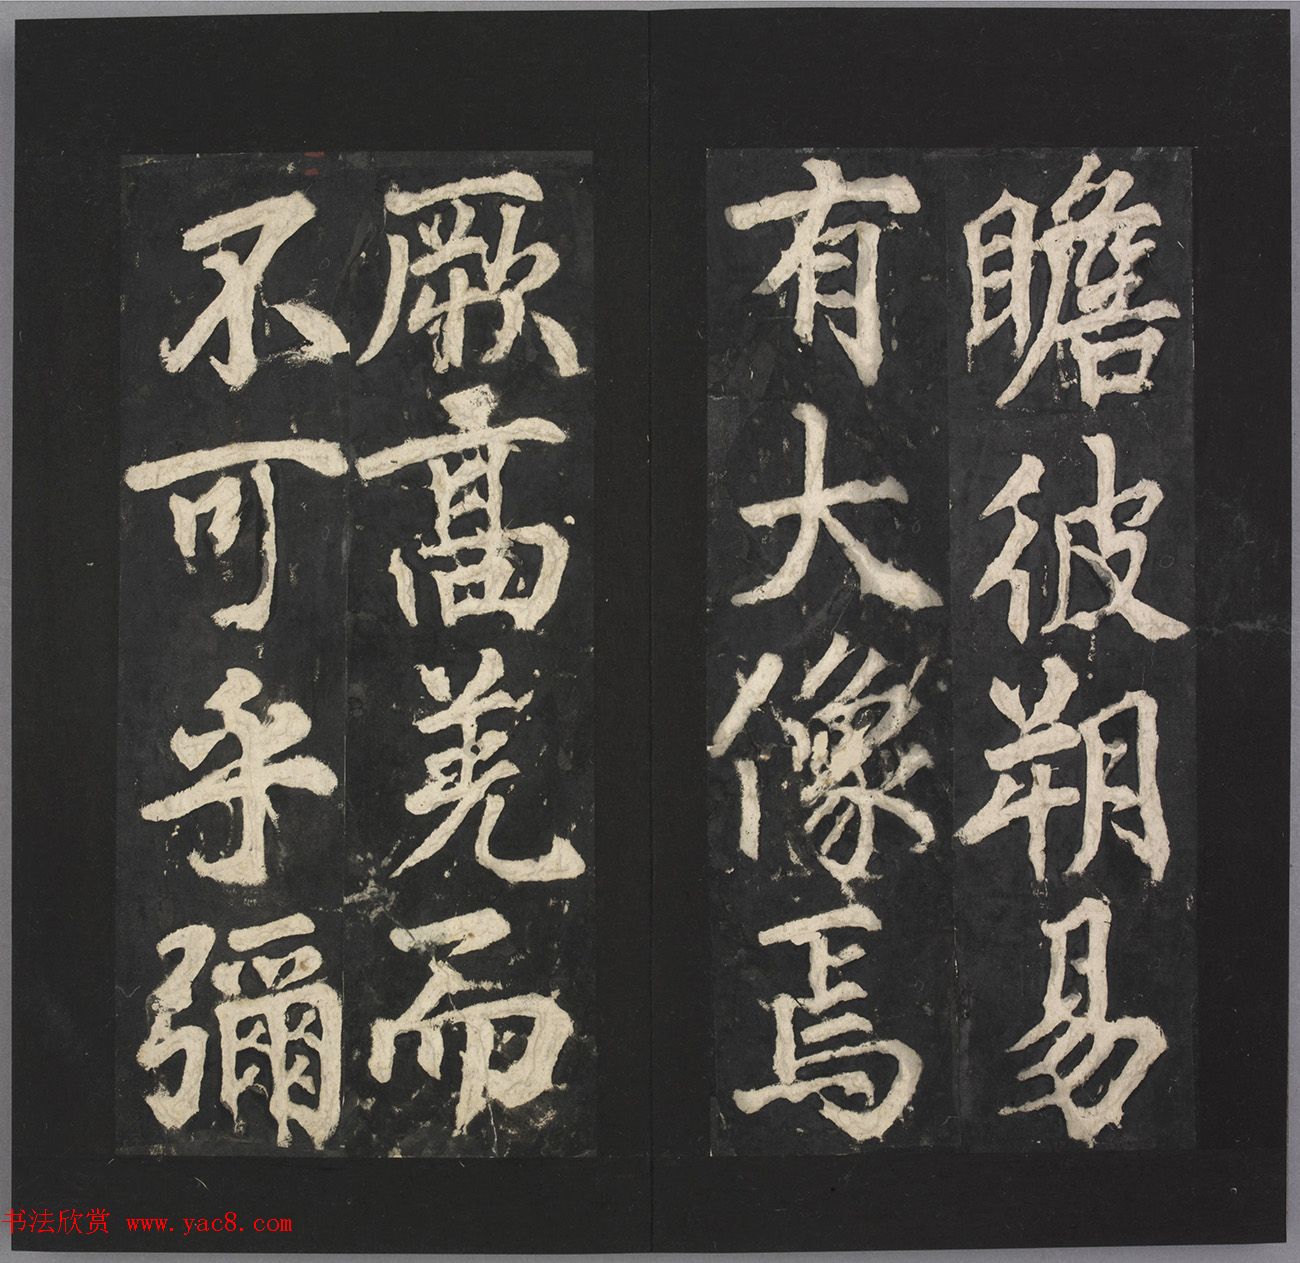 瞻彼朔易
有大像焉
厥高羌而
不可乎彌
书法欣赏 www.yac8.com